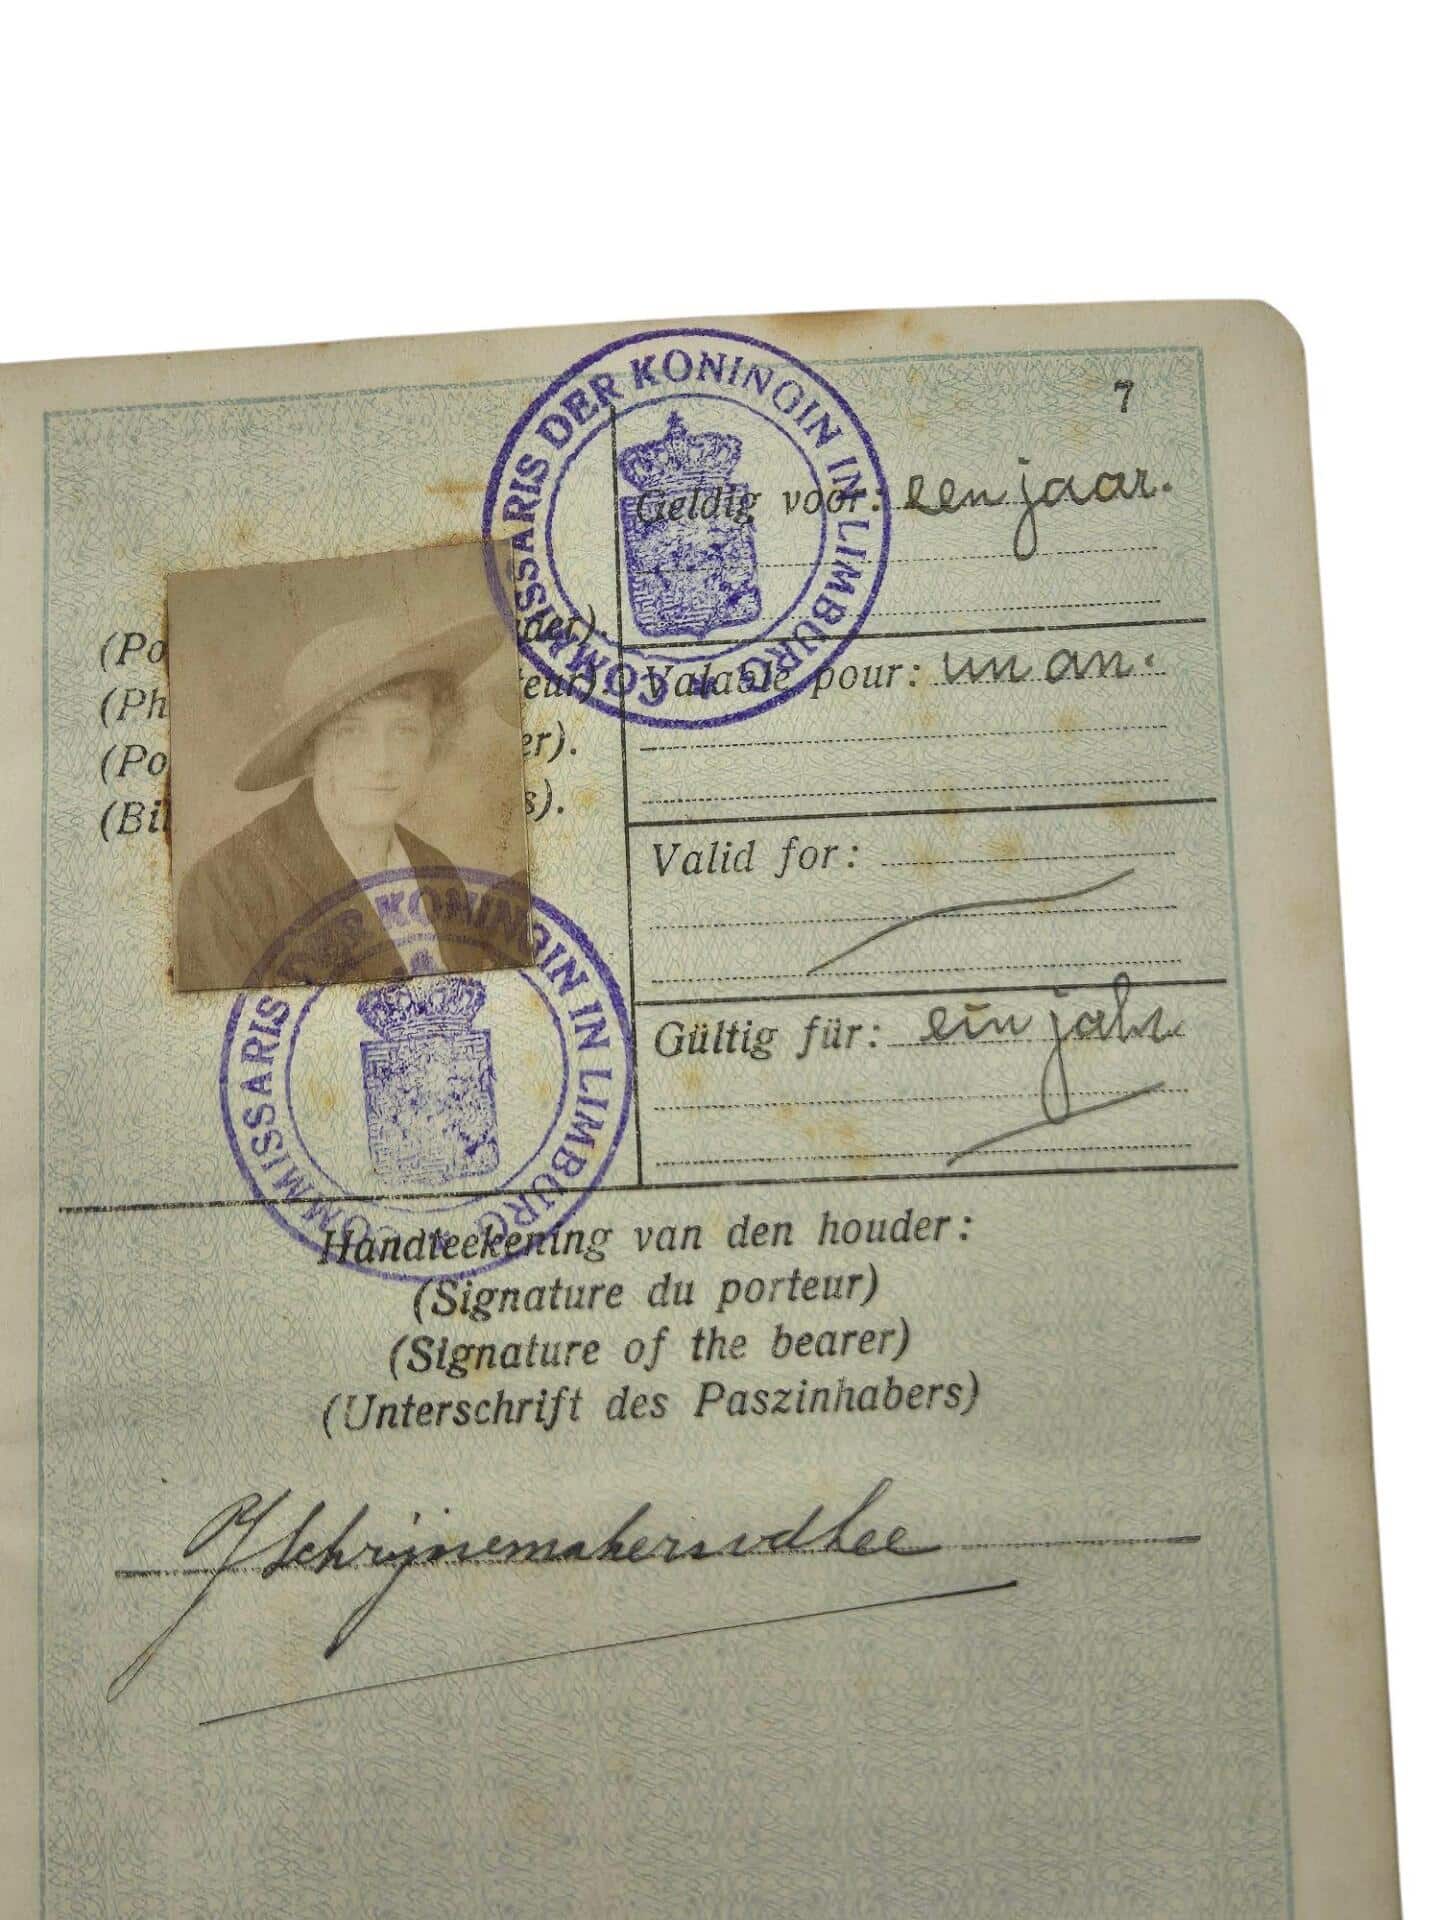 7
COMMISSARIS DER KONINGIN IN LIMBURG
Geldig voor: een jaar.
(Po der).
(Ph teur).
(Po er).
(Bil s).
Valable pour: un an.
Valid for:
Gültig für: ein jahr
COMMISSARIS DER KONINGIN IN LIMBURG
Handteekening van den houder:
(Signature du porteur)
(Signature of the bearer)
(Unterschrift des Paszinhabers)
Schrijnemakersvdhee